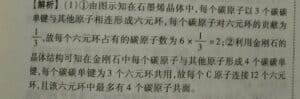 【解析】(1)①由图示知在石墨烯晶体中,每个碳原子以3个碳碳
单键与其他原子相连形成六元环,每个碳原子对六元环的贡献为
1/3,故每个六元环占有的碳原子数为6×1/3=2;②利用金刚石的
晶体结构可知在金刚石中每个碳原子与其他原子形成4个碳碳单
键,每个碳碳单键为3个六元环共用,故每个C原子连接12个六元
环,且该六元环中最多有4个碳原子共面。